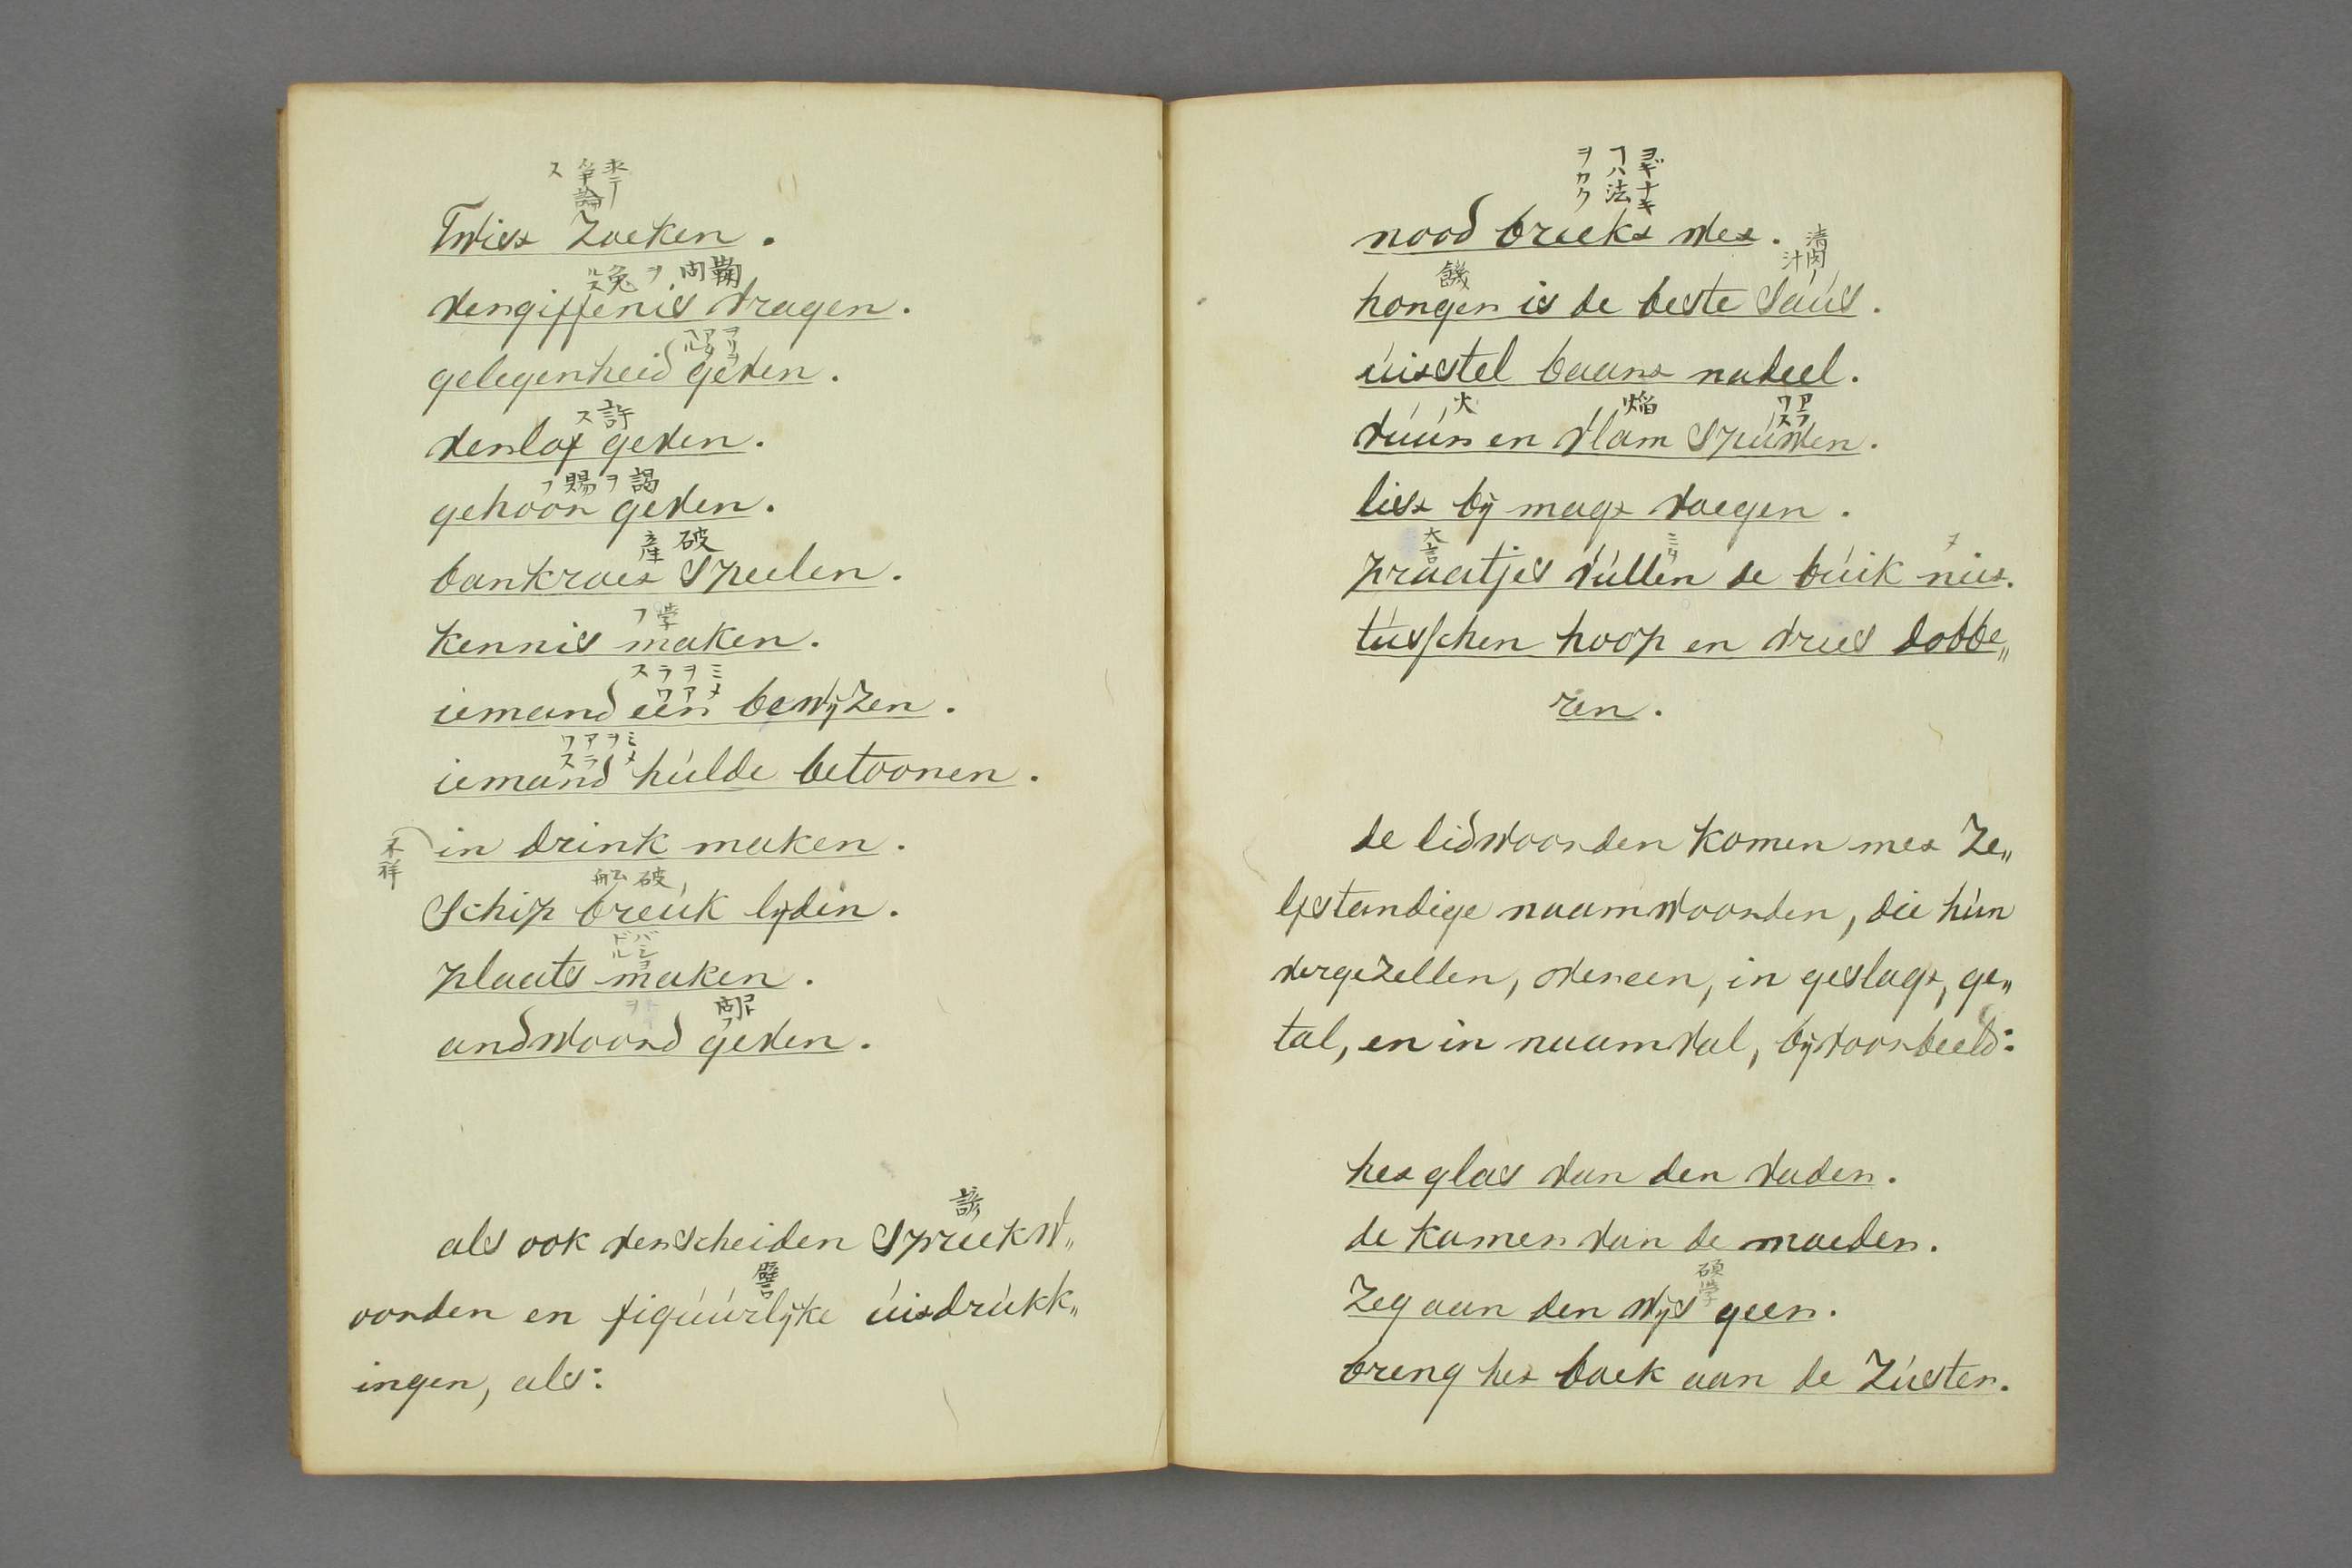 争論ス
Twist Zoeken.
鞠問ヲ免ルス
vergiffenis vragen.
gelegenheid geven.
許ス
verlof geven.
謁ヲ賜フ
gehoor geven.
破産
bankroet Speelen.
学フ
Kennis maken.
ミメヲアラワス
iemand eer bewijzen.
ミメヲアラワス
iemand húlde betoonen.
不祥
in drink maken.
破船
Schip breúk lijden.
plaats maken.
andwoord geven.
諺
als ook verscheiden Spreekw„
譬言
oorden en figúúrlijke úitdrúkk„
ingen, als:
ヨギナキ
コハ法
ヲカク
nood breekt wet.
饑 清肉汁
honger is de beste Saús.
úitstel baart nadeel.
火 焔 アラワス
vúúr en vlam Spúwen.
list bij magt voegen.
大言 ミタ ヌ
praatjes vúllen de búik niet.
tússchen hoop en vrees dobbe„
ren.
de lidwoorden Komen met Ze„
lfstandige naamwoorden, die hún
vergezellen, overeen, in geslagt, ge„
tal, en in naamval, bijvoorbeeld:
het glas van den vader.
de Kamer van de moeder.
碩学
Zeg aan den wijs geer.
breng het boek aan de Zúster.